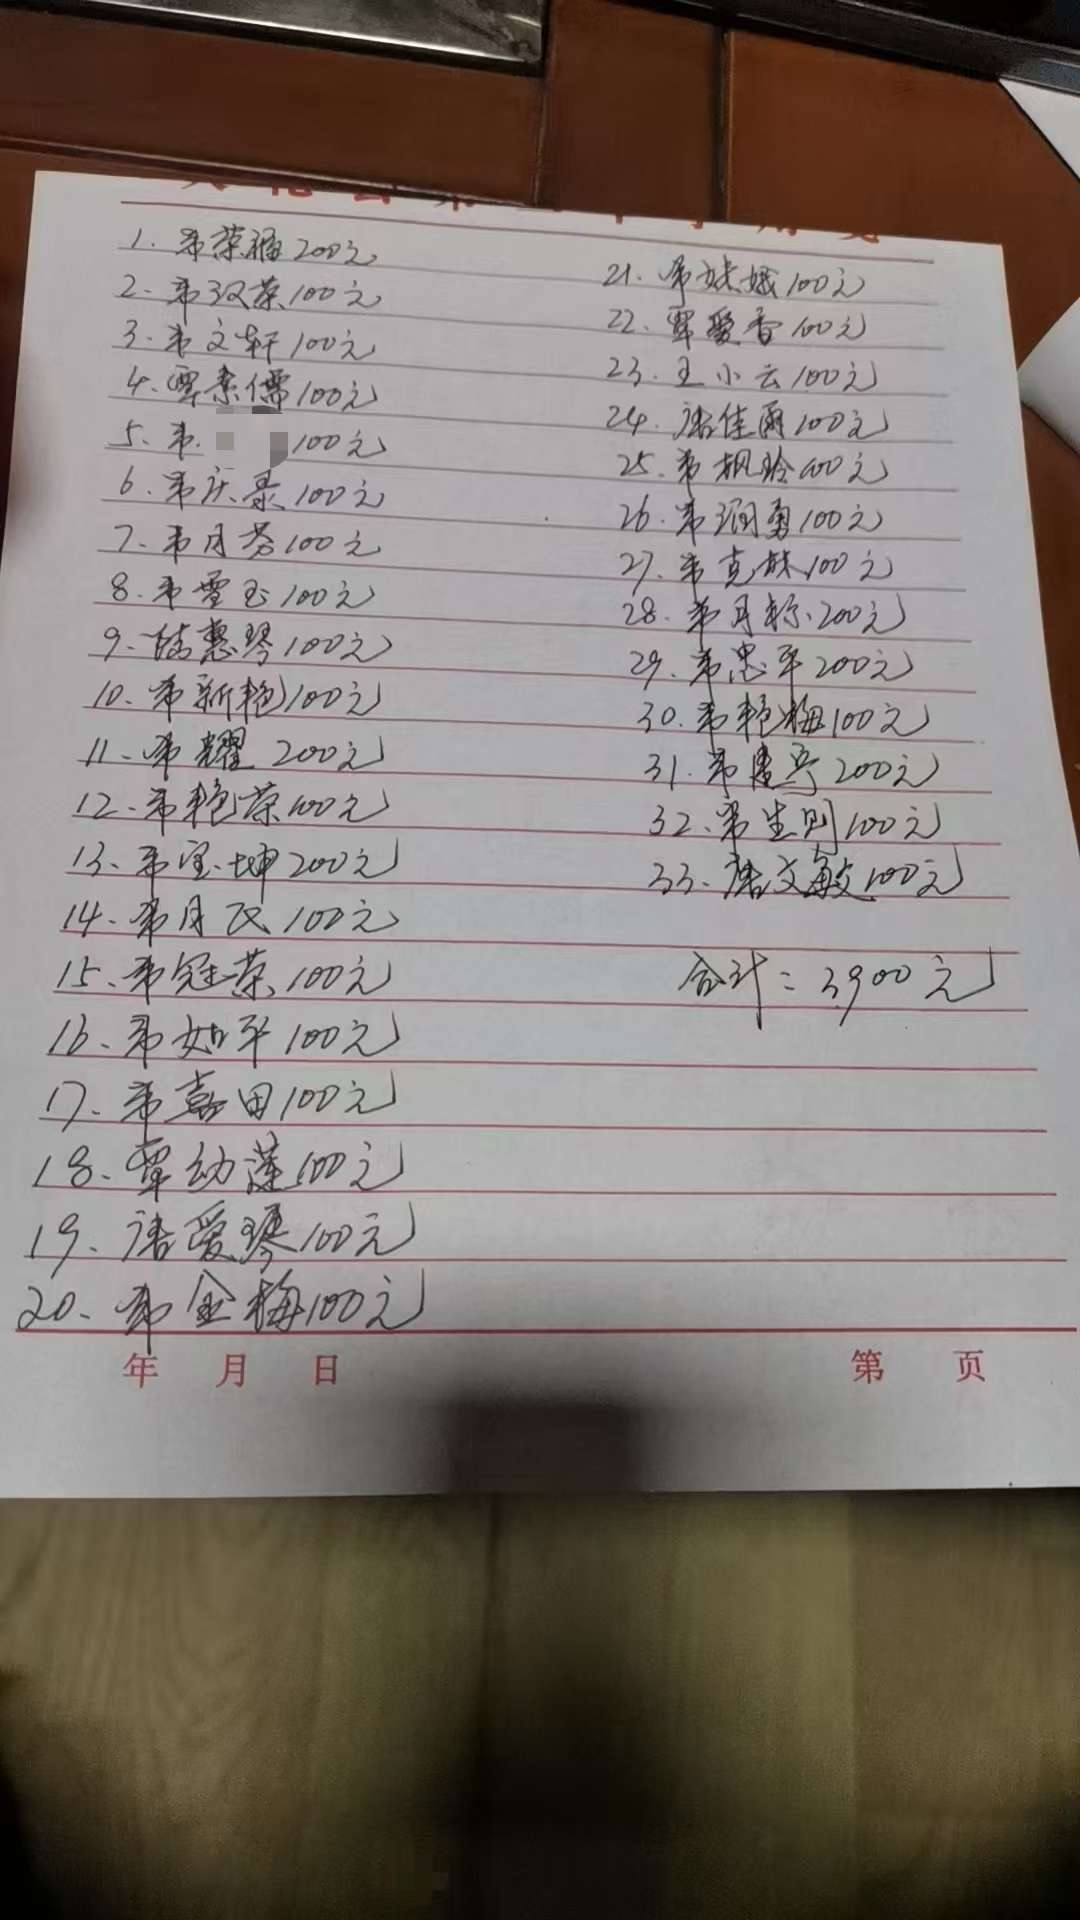 1. 韦荣福200元
2. 韦汉荣100元
3. 韦文轩100元
4. 覃素儒100元
5. 韦 100元
6. 韦庆泰100元
7. 韦月芬100元
8. 韦雪玉100元
9. 陆惠琴100元
10. 韦新艳100元
11. 韦耀 200元
12. 韦艳荣100元
13. 韦宝坤200元
14. 韦月民100元
15. 韦冠荣100元
16. 韦如平100元
17. 韦嘉田100元
18. 覃幼莲100元
19. 唐爱琴100元
20. 韦金梅100元
21. 韦妹娥100元
22. 覃爱香100元
23. 王小云100元
24. 唐佳雨100元
25. 韦枫玲100元
26. 韦润勇100元
27. 韦克妹100元
28. 韦月称200元
29. 韦忠平200元
30. 韦艳梅100元
31. 韦 200元
32. 韦生则100元
33. 唐文敏100元
合计:3900元
年 月 日 第 页